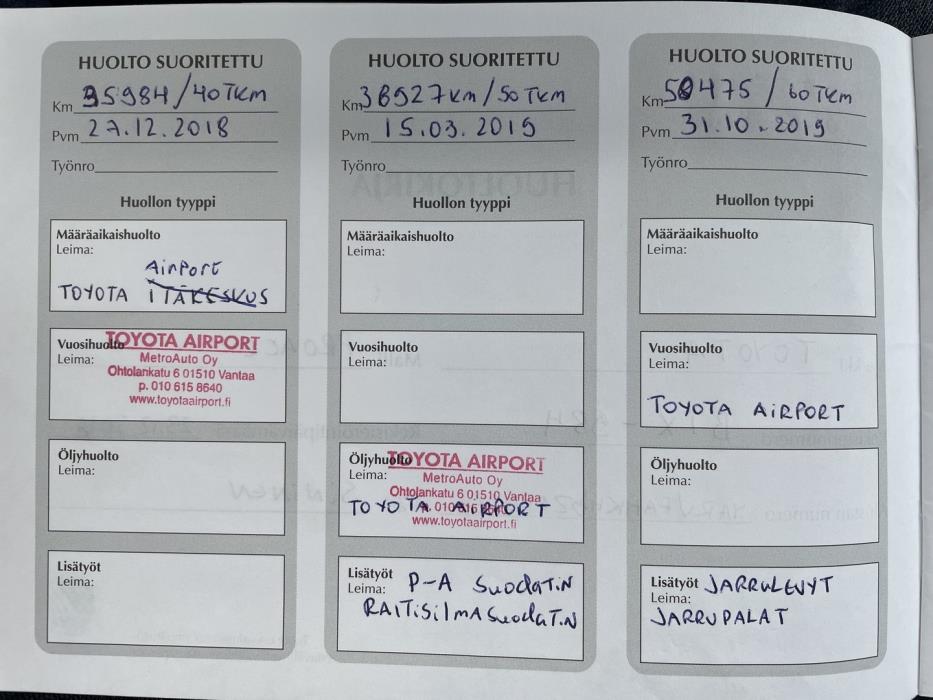 HUOLTO SUORITETTU
Km 35984/40TKM
Pvm 27.12.2018
Työnro
Huollon tyyppi
Määräaikaishuolto
Leima:
AIRPORT
TOYOTA ITÄKESKUS
Vuosihuolto
Leima:
TOYOTA AIRPORT
MetroAuto Oy
Ohtolankatu 6 01510 Vantaa
p. 010 615 8640
www.toyotaairport.fi
Öljyhuolto
Leima:
Lisätyöt
Leima:
HUOLTO SUORITETTU
Km 38927KM/50TKM
Pvm 15.03.2019
Työnro
Huollon tyyppi
Määräaikaishuolto
Leima:
Vuosihuolto
Leima:
Öljyhuolto
Leima:
TOYOTA AIRPORT
MetroAuto Oy
Ohtolankatu 6 01510 Vantaa
TOYOTA AIRPORT
www.toyotaairport.fi
Lisätyöt
Leima:
P-A SUODATIN
RAITISILMASUODATIN
HUOLTO SUORITETTU
Km 50475/60TKM
Pvm 31.10.2019
Työnro
Huollon tyyppi
Määräaikaishuolto
Leima:
Vuosihuolto
Leima:
TOYOTA AIRPORT
Öljyhuolto
Leima:
Lisätyöt JARRULEVYT
Leima:
JARRUPALAT